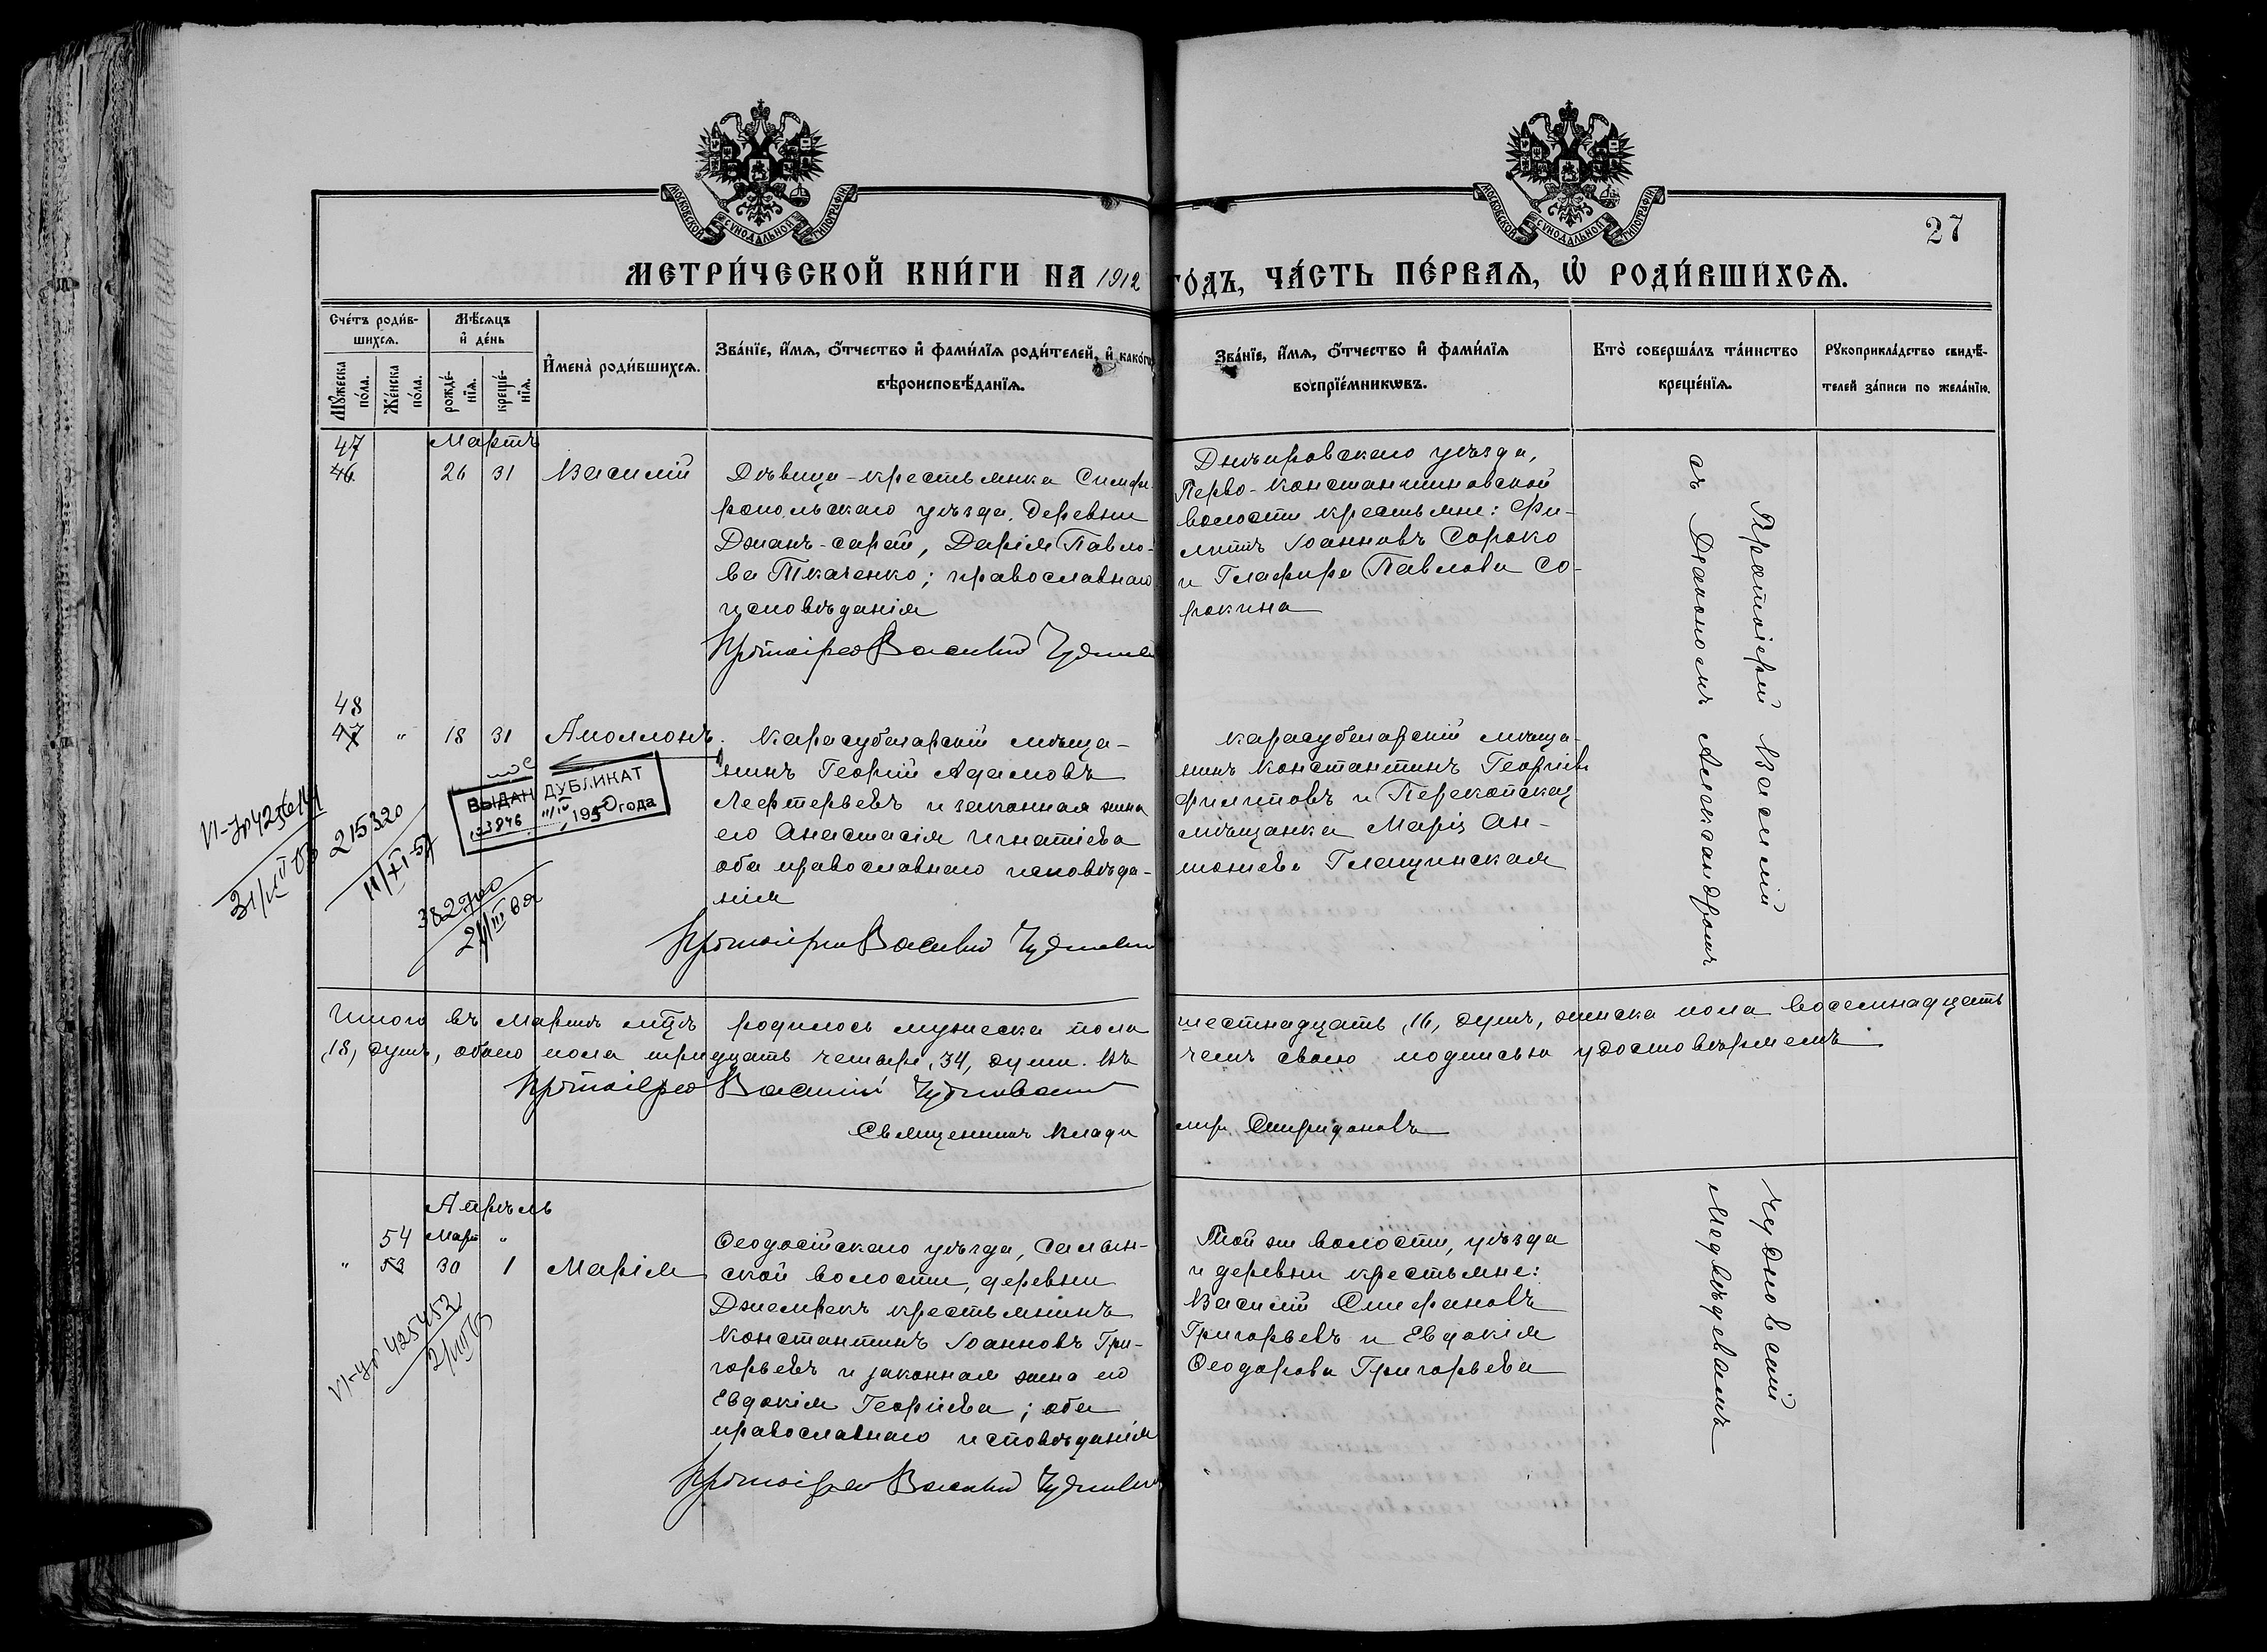 МОСКОВСКОЙ СУНОДАЛЬНОЙ ТИПОГРАФІИ
МОСКОВСКОЙ СУНОДАЛЬНОЙ ТИПОГРАФІИ
27
МЕТРИ́ЧЕСКОЙ КНИ́ГИ НА 1912 ГО́ДЪ, ЧА́СТЬ ПЕ́РВАѦ, Ѡ РОДИ́ВШИХСѦ.
Сче́тъ роди́в-
шихсѧ.
Мꙋжеска по́ла.
Же́нска по́ла.
Мѣ́сѧцъ
и де́нь
рожде́-
нїѧ.
креще́-
нїѧ.
Имена̀ роди́вшихсѧ.
Зва́нїе, и́мѧ, о́тчество и фами́лїѧ роди́телей, и како́гѡ
вѣроисповѣ́данїѧ.
Зва́нїе, и́мѧ, о́тчество и фами́лїѧ
воспрїе́мникѡвъ.
Кто̀ соверша́лъ та́инство
креще́нїѧ.
Рꙋкоприкла́дство свидѣ́-
телей за́писи по жела́нїю.
47
Мартъ
46 26 31 Василій
Дѣвица-крестьянка Симфе-
ропольскаго уѣзда, деревни
Джанъ-сарай, Дарія Павло-
ва Ткаченко; православнаго
исповѣданія
Протоіерей Василий
Днѣпровскаго уѣзда,
Перво-Константиновской
волости крестьяне: Фи-
липпъ Іоанновъ Сороко
и Глафира Павлова Со-
рокина
Протоіерей Василій
съ Діакономъ Александромъ
48
47 " 18 31 Аполлонъ.
Карасубазарскій мѣща-
нинъ Георгій Адамовъ
Лефтерьевъ и законная жена
его Анастасія Игнатіева
оба православнаго исповѣда-
нія
Протоіерей Василий
Карасубазарскій мѣща-
нинъ Константинъ Георгіев
Филипповъ и Перекопская
мѣщанка Марія Ан-
тоніева
ВЫДАН ДУБЛИКАТ
1950 года
215320
11/XI-57
382700
Итого въ Мартѣ мцѣ родилось мужеска пола шестнадцать, 16, душъ, женска пола восемнадцать
,18, душъ, обоего пола тридцать четыре, 34, души. Въ чемъ своею подписью удостовѣряемъ
Протоіерей Василій Чудновский
Священникъ Влади мир Спиридоновъ
Апрѣль
54 Март "
" 53 30 1 Марія
Ѳеодосійскаго уѣзда,
ской волости, деревни
Джемрекъ крестьянинъ
Константинъ Іоанновъ Гри-
горьевъ и законная жена его
Евдокія Георгіева; оба
православнаго исповѣданія
Протоіерей Василий
Той же волости, уѣзда
и деревни крестьяне:
Василій Стефановъ
Григорьевъ и Евдокія
Ѳеодорова Григорьева
Чудновскій
Медвѣдевымъ
425453